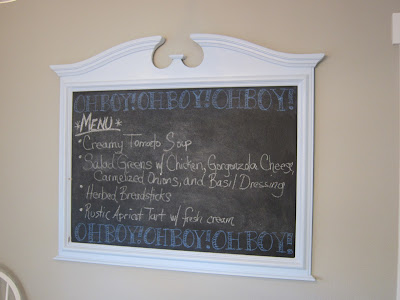 OH BOY! OH BOY! OH BOY!
*MENU*
• Creamy Tomato Soup
• Salad Greens w/ Chicken, Gorgonzola Cheese,
Carmelized Onions, and Basil Dressing
• Herbed Breadsticks
• Rustic Apricot Tart w/ fresh cream
OH BOY! OH BOY! OH BOY!